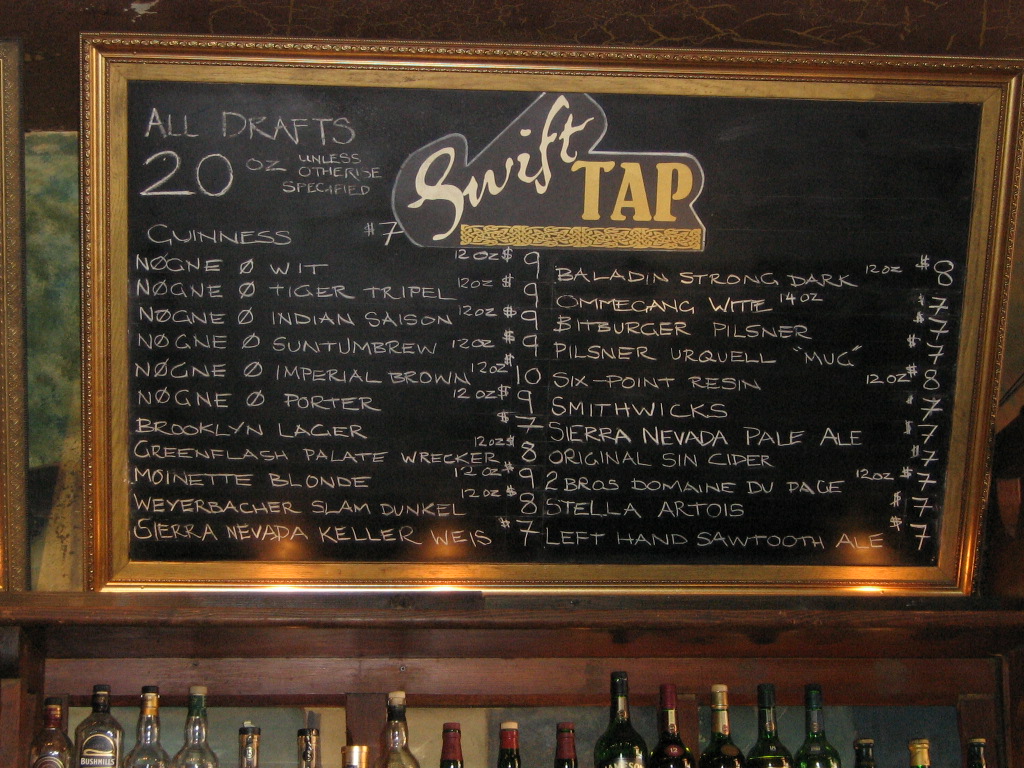 ALL DRAFTS
20 OZ UNLESS OTHERISE SPECIFIED
Swift
TAP
GUINNESS $7
NØGNE Ø WIT 12 OZ $ 9
NØGNE Ø TIGER TRIPEL 12OZ $ 9
NØGNE Ø INDIAN SAISON 12OZ $ 9
NØGNE Ø SUNTUMBREW 12OZ $ 9
NØGNE Ø IMPERIAL BROWN 12OZ $ 10
NØGNE Ø PORTER 12 OZ $ 9
BROOKLYN LAGER $ 7
GREENFLASH PALATE WRECKER 12OZ $ 8
MOINETTE BLONDE 12 OZ $ 9
WEYERBACHER SLAM DUNKEL 12 OZ $ 8
SIERRA NEVADA KELLER WEIS $ 7
BALADIN STRONG DARK 12OZ $ 8
OMMEGANG WITTE 14 OZ $ 7
BITBURGER PILSNER $ 7
PILSNER URQUELL "MUG" $ 7
SIX-POINT RESIN 12OZ $ 8
SMITHWICKS $ 7
SIERRA NEVADA PALE ALE $ 7
ORIGINAL SIN CIDER $ 7
2 BROS DOMAINE DU PAGE 12OZ $ 7
STELLA ARTOIS $ 7
LEFT HAND SAWTOOTH ALE $ 7
BUSHMILLS